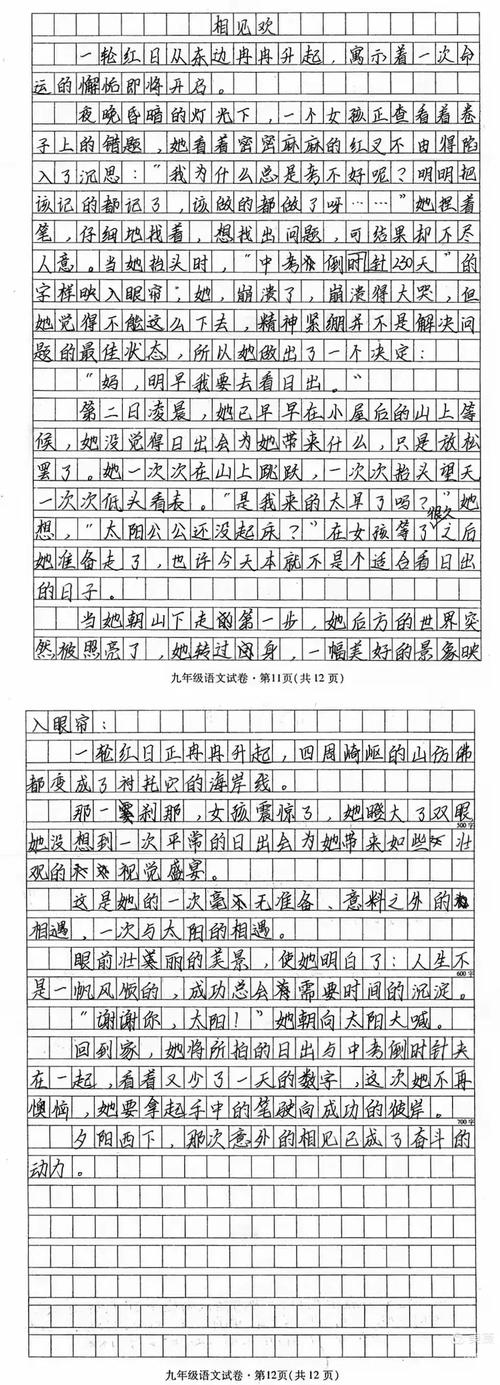 相见欢
一轮红日从东边冉冉升起，寓示着一次命
运的懈怡即将开启。
夜晚昏暗的灯光下，一个女孩正查看着卷
子上的错题，她看着密密麻麻的红叉不由得陷
入了沉思："我为什么总是考不好呢？明明把
该记的都记了，该做的都做了呀……"她捏着
笔，仔细地找着，想找出问题，可结果却不尽
人意。当她抬头时，"中考倒时针230天"的
字样映入眼帘，她，崩溃了，崩溃得大哭，但
她觉得不能这么下去，精神紧绷并不是解决问
题的最佳状态，所以她做出了一个决定：
"妈，明早我要去看日出。"
第二日凌晨，她已早早在小屋后的山上等
候，她没觉得日出会为她带来什么，只是放松
罢了。她一次次在山上跳跃，一次次抬头望天
一次次低头看表。"是我来的太早了吗？"她
想，"太阳公公还没起床？"在女孩等了很久之后
她准备走了，也许今天本就不是个适合看日出
的日子。
当她朝山下走的第一步，她后方的世界突
然被照亮了，她转过身，一幅美好的景象映
九年级语文试卷·第11页(共12页)
入眼帘：
一轮红日正冉冉升起，四周崎岖的山仿佛
都变成了衬托它的海岸线。
那一刹那，女孩震惊了，她瞪大了双眼
500字
她没想到一次平常的日出会为她带来如些壮
观的视觉盛宴。
这是她的一次毫无准备、意料之外的
相遇，一次与太阳的相遇。
眼前壮丽的美景，使她明白了：人生不
600字
是一帆风顺的，成功总会需要时间的沉淀。
"谢谢你，太阳！"她朝向太阳大喊。
回到家，她将所拍的日出与中考倒时针夹
在一起，看着又少了一天的数字，这次她不再
懊恼，她要拿起手中的笔驶向成功的彼岸。
700字
夕阳西下，那次意外的相见已成了奋斗的
动力。
九年级语文试卷·第12页(共12页)